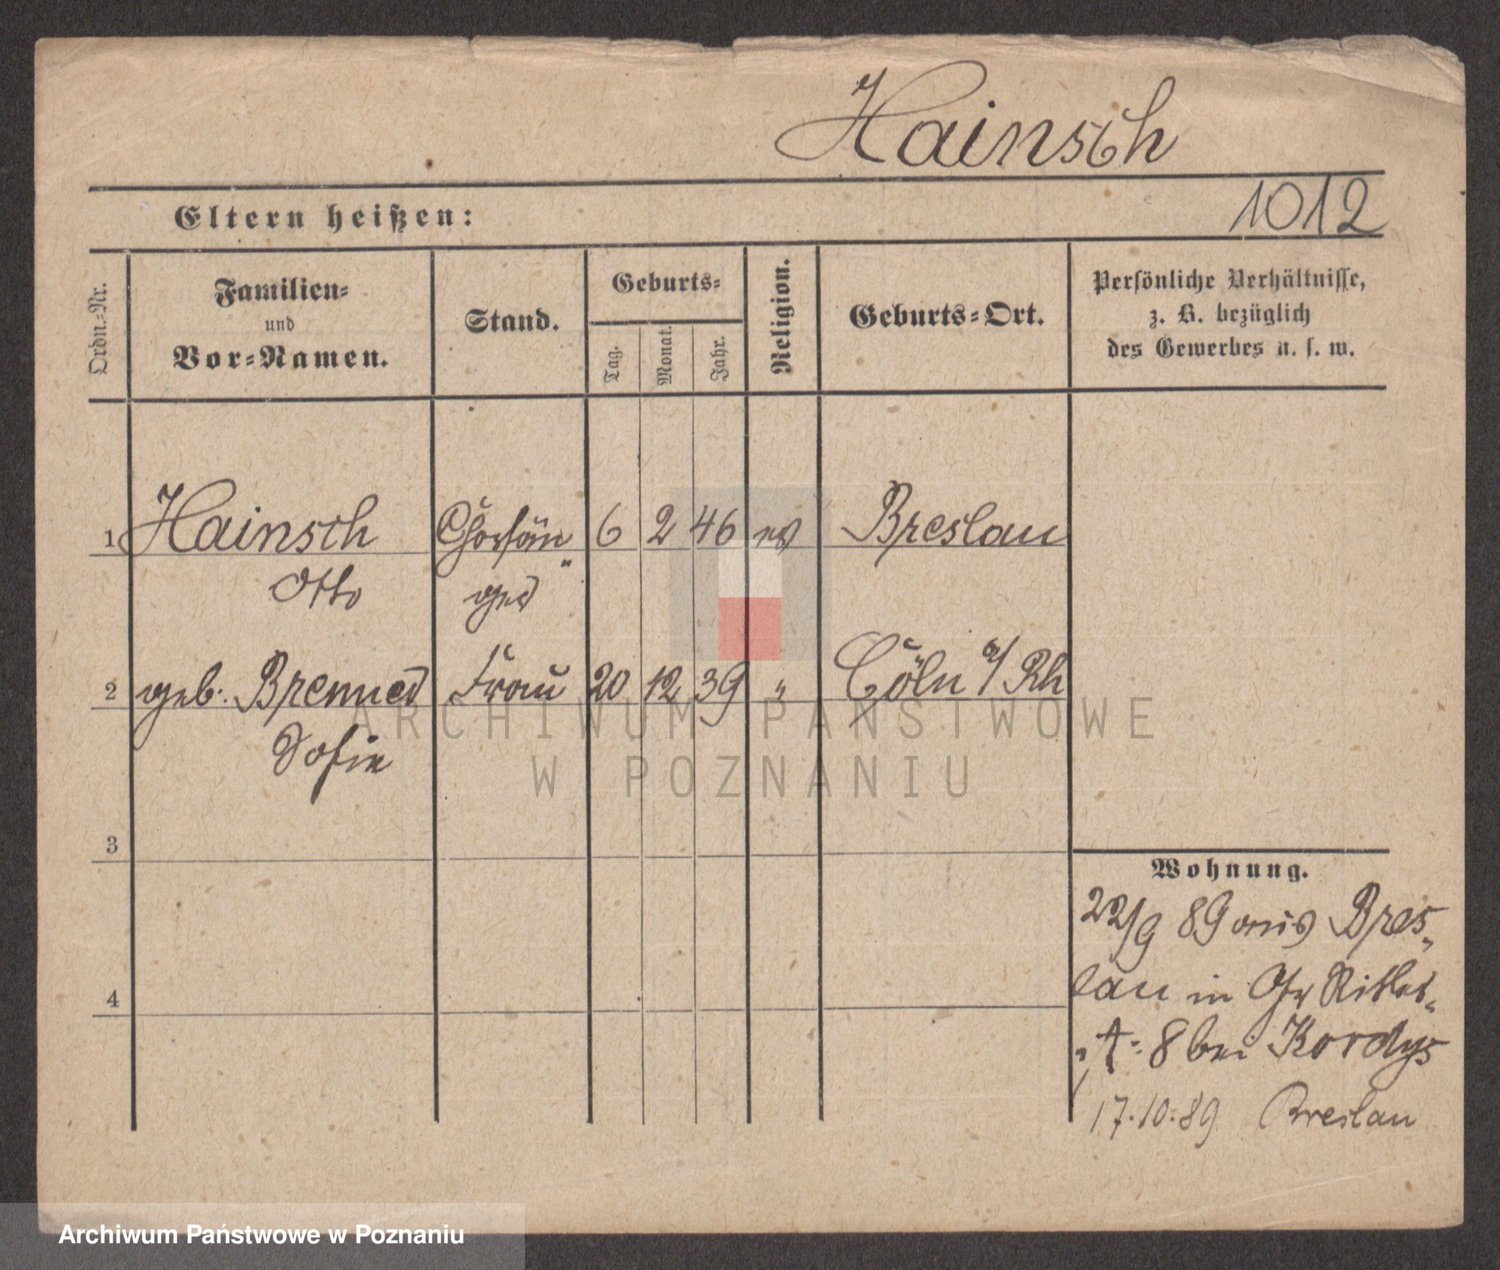 Hainsch
1012
Eltern heißen:
Ordn.-Nr.
Familien-
und
Vor-Namen.
Stand.
Geburts-
Tag.
Monat.
Jahr.
Religion.
Geburts-Ort.
Persönliche Verhältnisse,
z. B. bezüglich
des Gewerbes u. s. w.
1 Hainsch Chorsän" 6 2 46 ev Breslau
Otto ger
2 geb. Brenner Frau 20 12 39 " Cöln a/Rh
Sofie
3
4
Wohnung.
22/9 89 aus Bres"
lau in Gr Ritter"
"str 8 bei Kordys
17.10.89 Breslau
ARCHIWUM PAŃSTWOWE
W POZNANIU
Archiwum Państwowe w Poznaniu